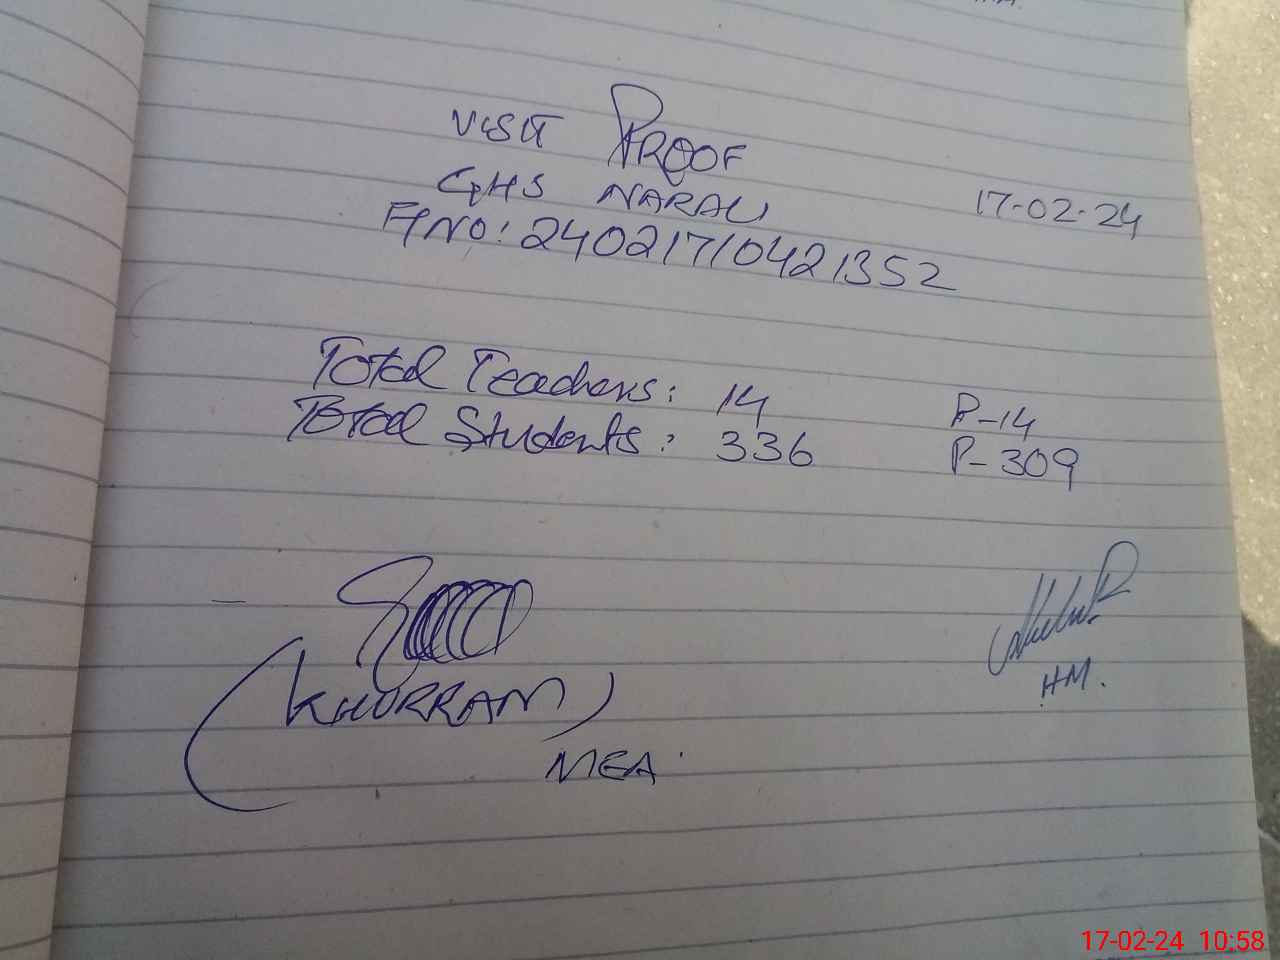 VISIT PROOF
GHS NARALI 17-02-24
F/NO: 24021710421352
Total Teachers: 14 P-14
Total Students: 336 P-309
(KHURRAM)
MEA.
HM.
17-02-24 10:58